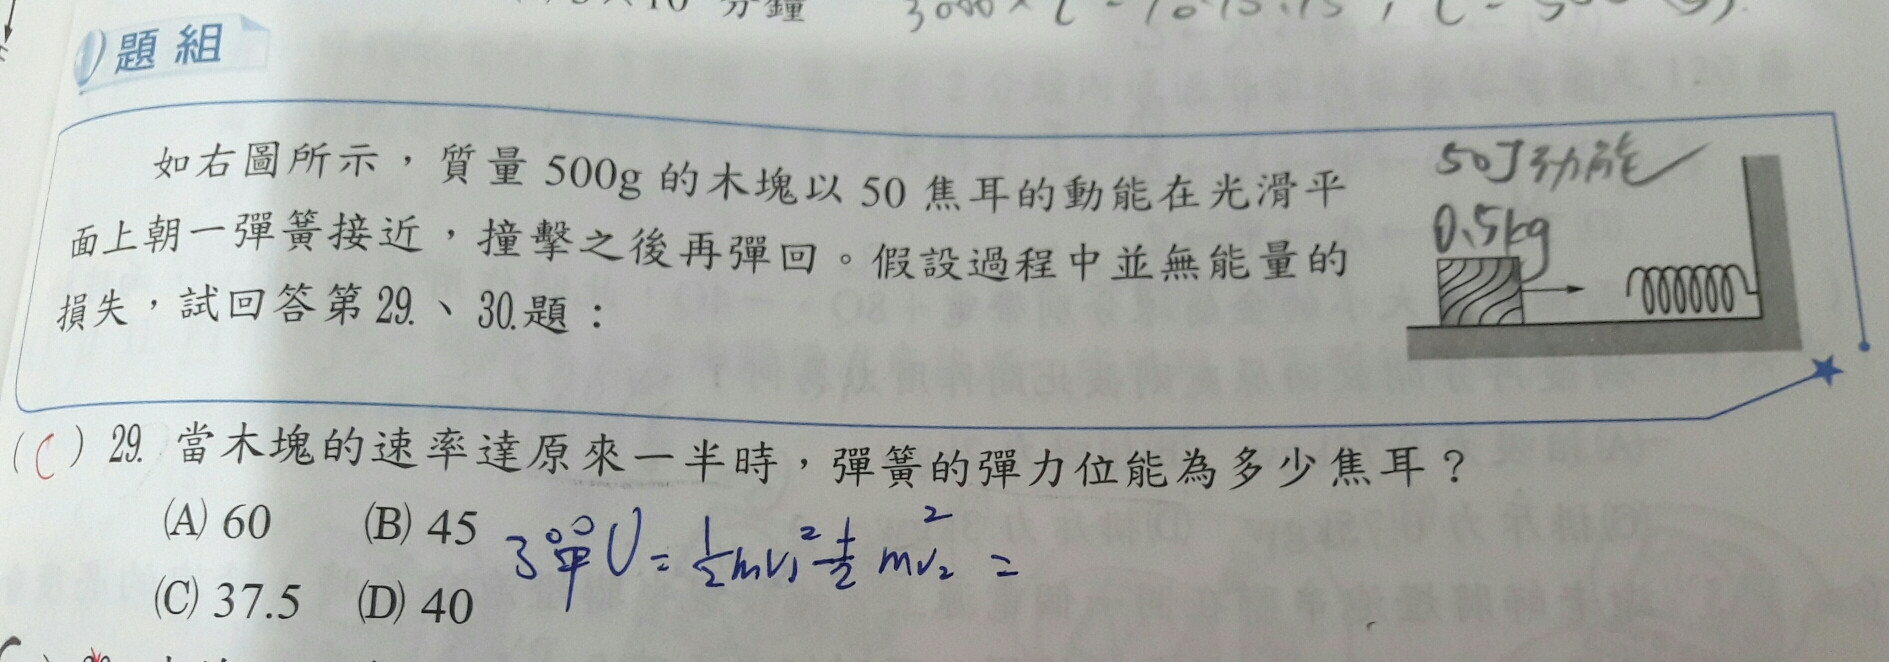 分鐘
題組
如右圖所示，質量 500g 的木塊以 50 焦耳的動能在光滑平
面上朝一彈簧接近，撞擊之後再彈回。假設過程中並無能量的
損失，試回答第 29.、30.題：
50J動能
0.5kg
(C) 29. 當木塊的速率達原來一半時，彈簧的彈力位能為多少焦耳？
(A) 60 (B) 45
(C) 37.5 (D) 40
彈U = 1/2 mv₁² - 1/2 mv₂² =